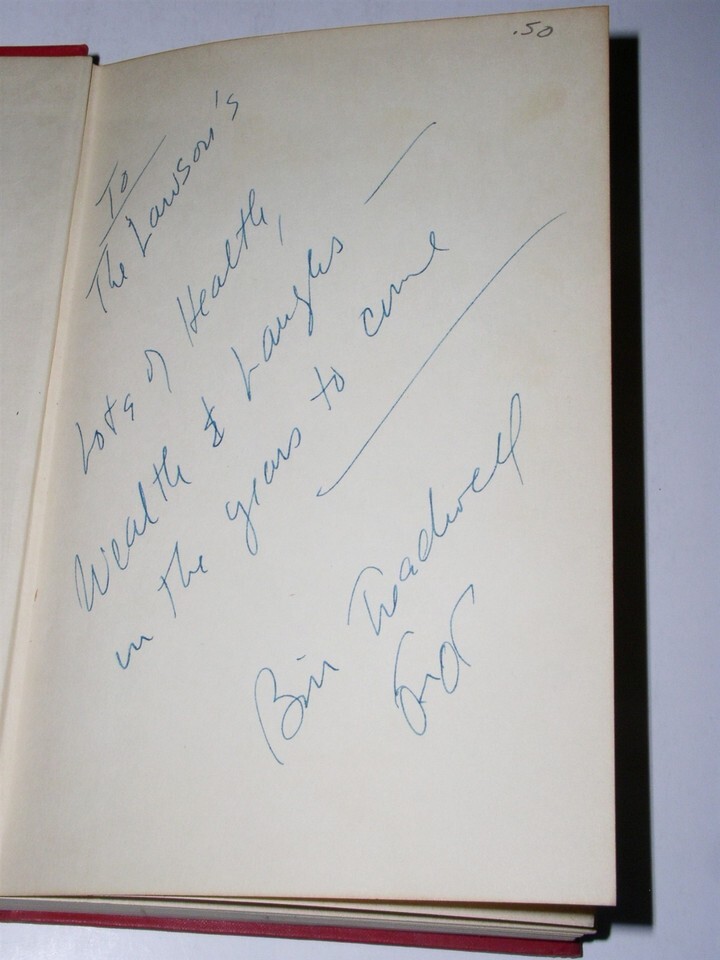 .50
To
The Lawson's
Lots of Health,
Wealth & Laughs —
in the years to come
Bill Treadwell